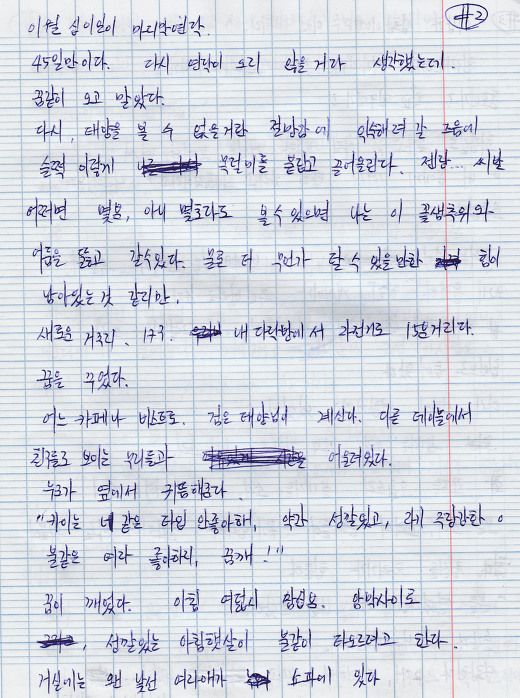 #2
이월 십이일이 마지막연락.
45일만이다. 다시 연락이 오리 않을거라 생각했는데.
꿈같이 오고 말았다.
다시, 태양을 볼 수 없을거란 절망감에 익숙해려 갈 즈음에
슬쩍 이렇게 목덜미를 붙잡고 끌어올린다. 젠장... 씨발
어쩌면 몇분, 아니 몇초라도 볼 수 있으면 나는 이 추위와
어둠을 뚫고 갈수있다. 물론 더 무언가 탈 수 있을만한 힘이
남아있는 것 같리만.
새로운 거주리. 17구. 내 다락방에서 자전거로 15분거리다.
꿈을 꾸었다.
어느 카페나 비스트로. 검은 태양님이 계신다. 다른 테이블에서
친구들로 보이는 무리들과 어울려있다.
누가 옆에서 귀뜸해준다.
"카이는 네 같은 타입 안좋아해, 약간 성깔있고, 자기 주장강한
불같은 여자 좋아하리, 꿈깨!"
꿈이 깨었다. 아침 여덟시 삼십분. 암막사이로
, 성깔있는 아침햇살이 불같이 타오르려고 한다.
거실에는 왠 낯선 여자애가 쇼파에 있다